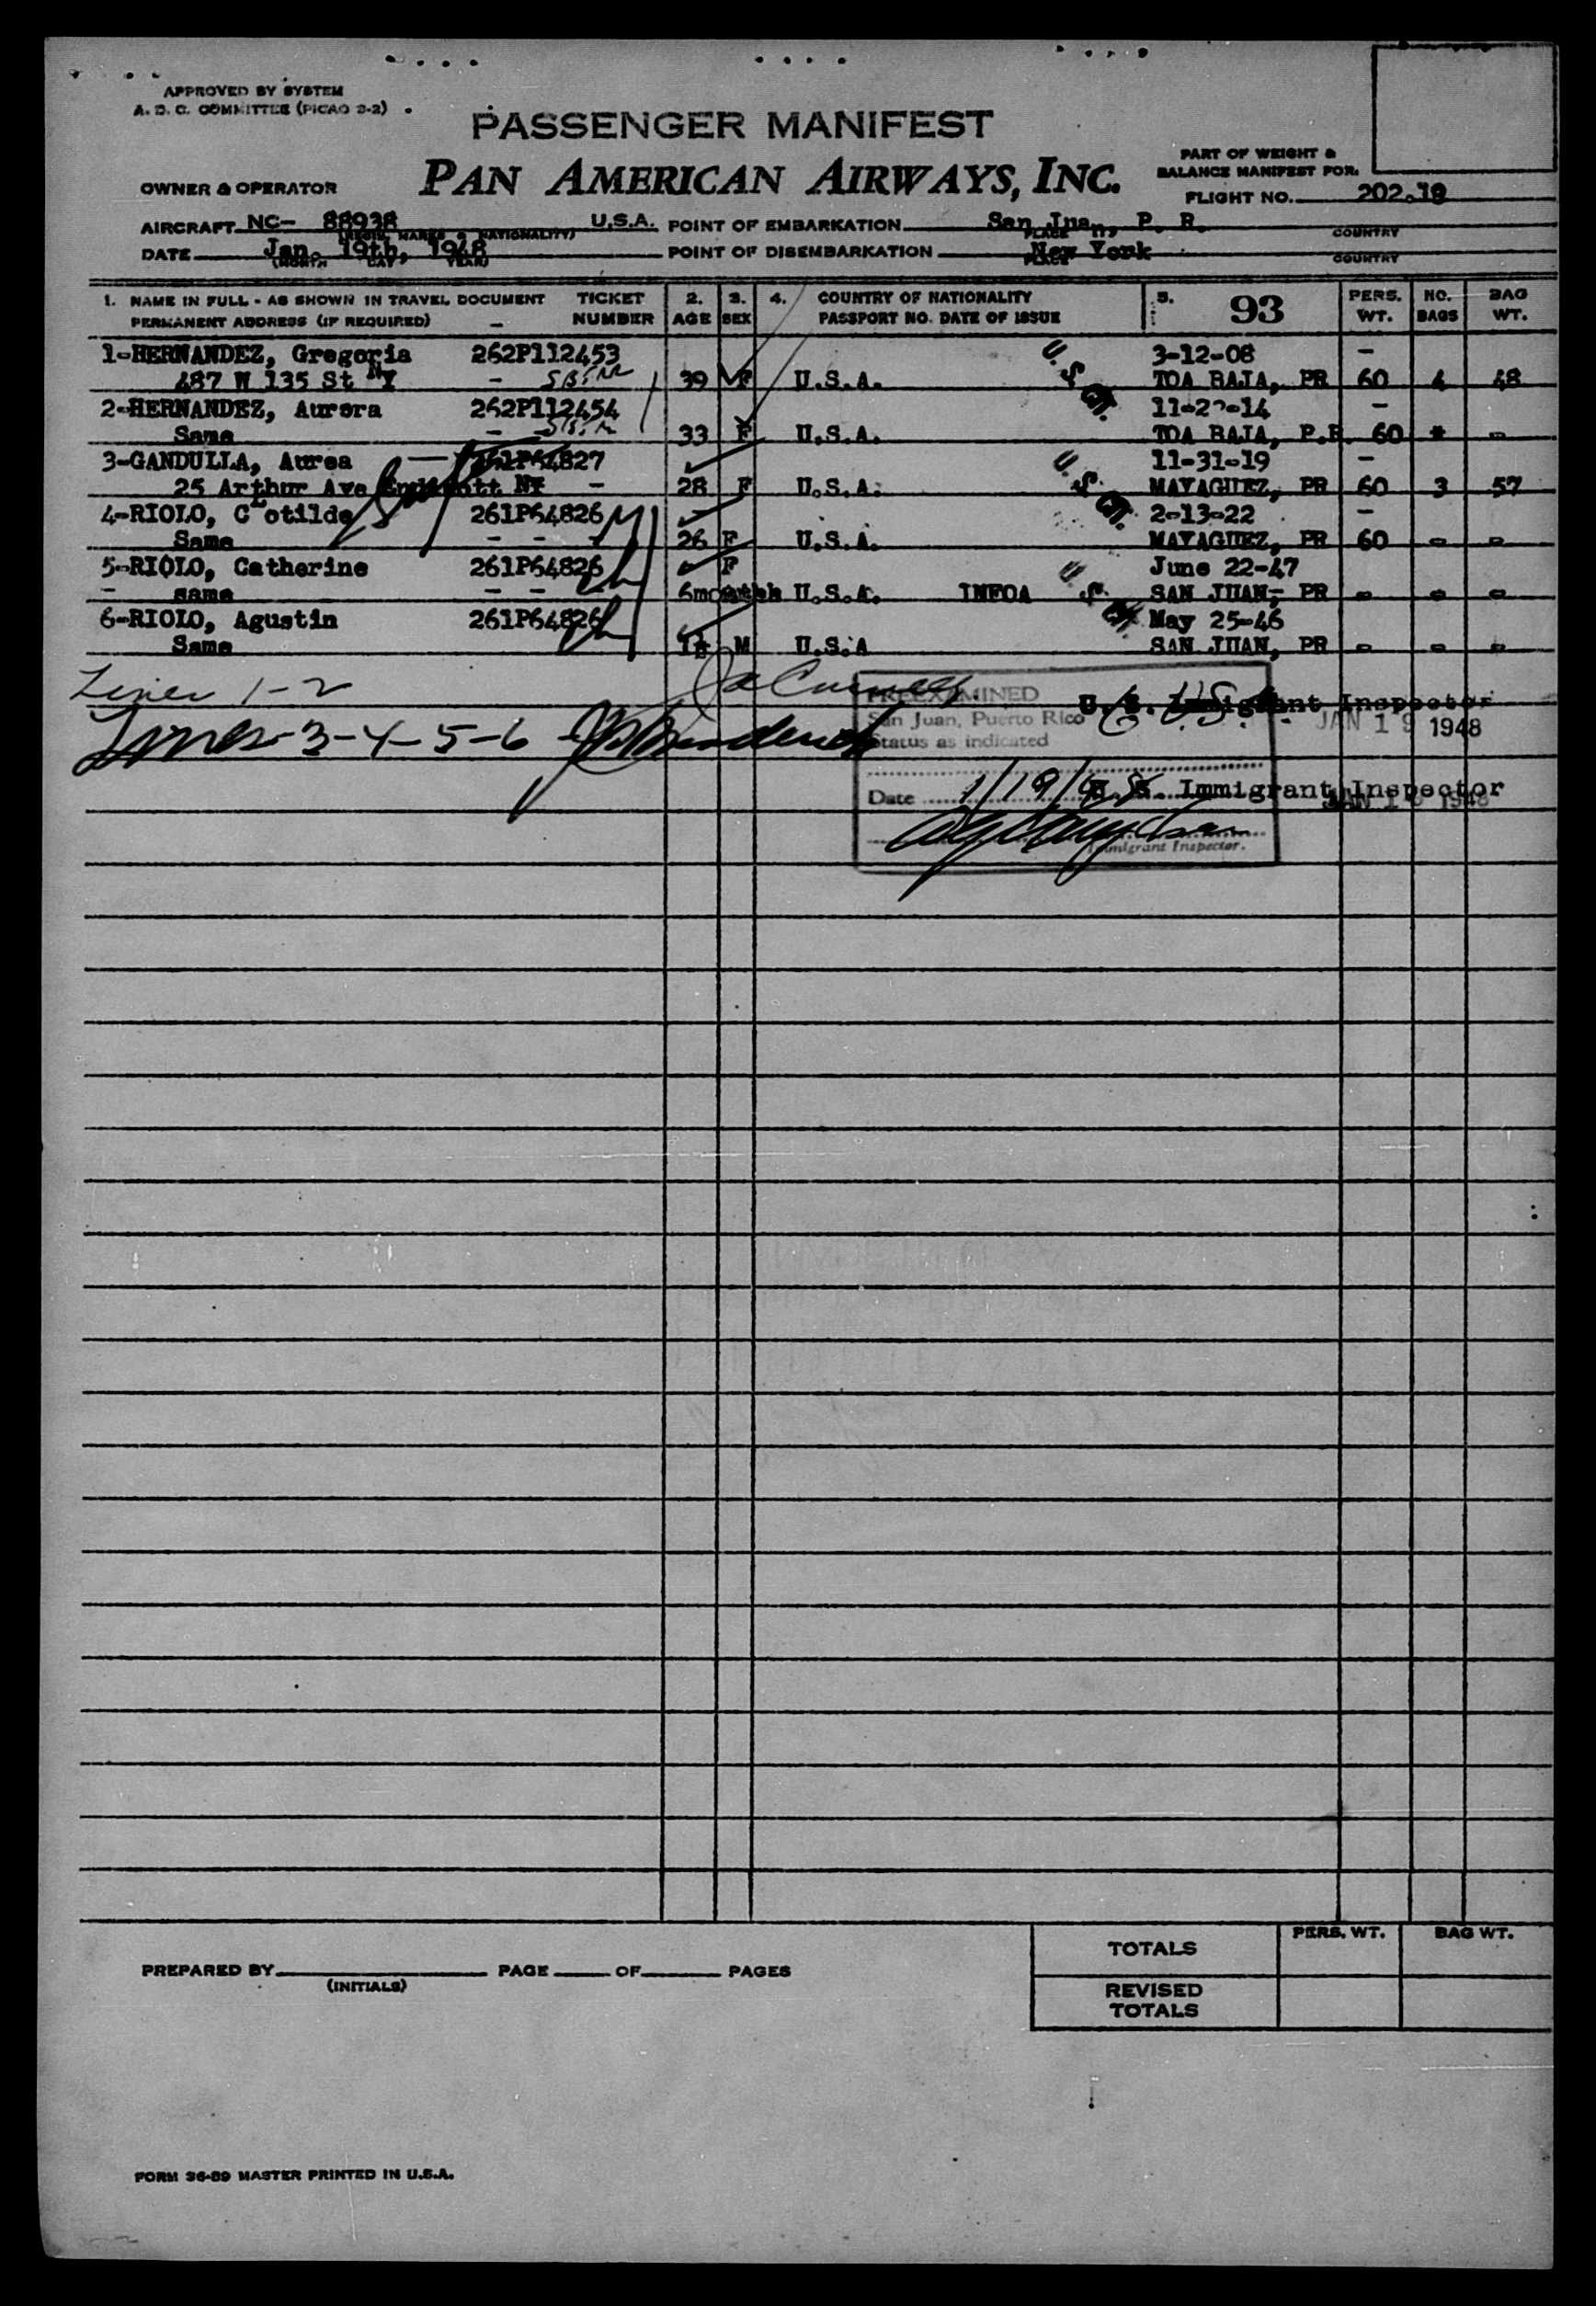 APPROVED BY SYSTEM
A. D. C. COMMITTEE (PICAO 3-2)
PASSENGER MANIFEST
PAN AMERICAN AIRWAYS, INC.
PART OF WEIGHT &
BALANCE MANIFEST FOR:
OWNER & OPERATOR
FLIGHT NO. 202-19
AIRCRAFT NC- 88938 U.S.A. POINT OF EMBARKATION San Jua n, P. R.
(REGIS. MARKS & NATIONALITY) PLACE COUNTRY
DATE Jan. 19th, 1948 POINT OF DISEMBARKATION New York
(MONTH DAY YEAR) PLACE COUNTRY
1. NAME IN FULL - AS SHOWN IN TRAVEL DOCUMENT TICKET 2. 3. 4. COUNTRY OF NATIONALITY 5. 93 PERS. NO. BAG
PERMANENT ADDRESS (IF REQUIRED) - NUMBER AGE SEX PASSPORT NO. DATE OF ISSUE WT. BAGS WT.
1-HERNANDEZ, Gregoria 262P112453 3-12-08 -
487 W 135 St NY - 39 F U.S.A. U.S. TOA BAJA, PR 60 4 48
2-HERNANDEZ, Aurora 262P112454 -14 -
Same - - 33 F U.S.A. TOA BAJA, P.R. 60 * -
3-GANDULLA, Aurea 261P64827 11-31-19 -
25 Arthur Ave Endicott NY - 28 F U.S.A. U.S. MAYAGUEZ, PR 60 3 57
4-RIOLO, Clotilde 261P64826 2-13-22 -
Same - - - 26 F U.S.A. MAYAGUEZ, PR 60 - -
5-RIOLO, Catherine 261P64826 F June 22-47
- same - - - 6months U.S.A. INFOA U.S. SAN JUAN, PR - - -
6-RIOLO, Agustin 261P64826 May 25-46
Same 1½ M U.S.A SAN JUAN, PR - - -
Lines 1-2
PREEXAMINED U. S. Immigrant Inspector
San Juan, Puerto Rico JAN 19 1948
Lines-3-4-5-6
Status as indicated
Date 1/19/48 U. S. Immigrant Inspector
JAN 19 1948
Immigrant Inspector.
PERS. WT. BAG WT.
TOTALS
PREPARED BY PAGE OF PAGES
(INITIALS)
REVISED
TOTALS
FORM 36-89 MASTER PRINTED IN U.S.A.